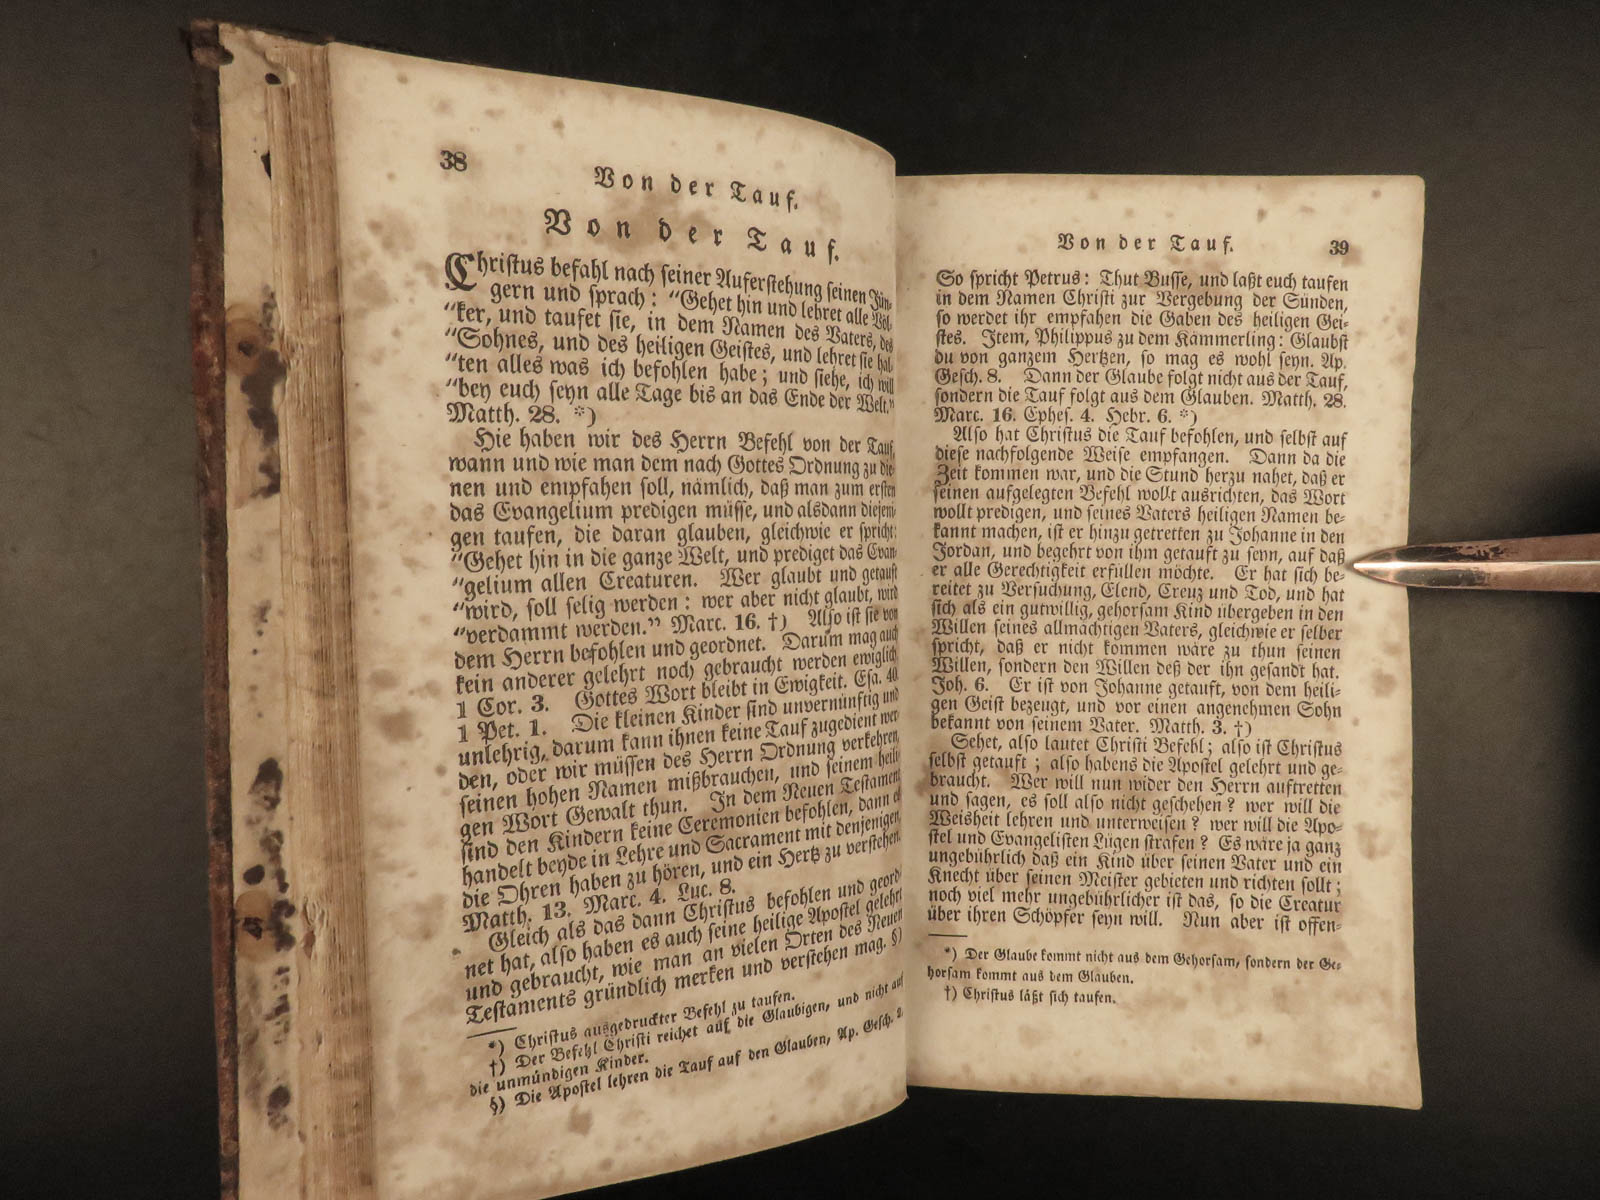 38
Von der Tauf.
Von der Tauf.
Christus befahl nach seiner Auferstehung seinen Jün-
gern und sprach: “Gehet hin und lehret alle Völ-
“ker, und taufet sie, in dem Namen des Vaters, des
“Sohnes, und des heiligen Geistes, und lehret sie hal-
“ten alles was ich befohlen habe; und siehe, ich will
“bey euch seyn alle Tage bis an das Ende der Welt.”
Matth. 28. *)
Hie haben wir des Herrn Befehl von der Tauf,
wann und wie man dem nach Gottes Ordnung zu die-
nen und empfahen soll, nämlich, daß man zum ersten
das Evangelium predigen müsse, und alsdann diejeni-
gen taufen, die daran glauben, gleichwie er spricht:
“Gehet hin in die ganze Welt, und prediget das Evan-
“gelium allen Creaturen. Wer glaubt und getauft
“wird, soll selig werden: wer aber nicht glaubt, wird
“verdammt werden.” Marc. 16. †) Also ist sie von
dem Herrn befohlen und geordnet. Darum mag auch
kein anderer gelehrt noch gebraucht werden ewiglich.
1 Cor. 3. Gottes Wort bleibt in Ewigkeit. Esa. 40.
1 Pet. 1. Die kleinen Kinder sind unvernünftig und
unlehrig, darum kann ihnen keine Tauf zugedient wer-
den, oder wir müssen des Herrn Ordnung verkehren,
seinen hohen Namen mißbrauchen, und seinem heili-
gen Wort Gewalt thun. In dem Neuen Testament
sind den Kindern keine Ceremonien befohlen, dann es
handelt beyde in Lehre und Sacrament mit denjenigen,
die Ohren haben zu hören, und ein Hertz zu verstehen.
Matth. 13. Marc. 4. Luc. 8.
Gleich als das dann Christus befohlen und geord-
net hat, also haben es auch seine heilige Apostel gelehrt
und gebraucht, wie man an vielen Orten des Neuen
Testaments gründlich merken und verstehen mag. §)
*) Christus ausgedruckter Befehl zu taufen.
†) Der Befehl Christi reichet auf die Glaubigen, und nicht auf
die unmündigen Kinder.
§) Die Apostel lehren die Tauf auf den Glauben, Ap. Gesch. 2.
Von der Tauf.
39
So spricht Petrus: Thut Busse, und laßt euch taufen
in dem Namen Christi zur Vergebung der Sünden,
so werdet ihr empfahen die Gaben des heiligen Gei-
stes. Item, Philippus zu dem Kämmerling: Glaubst
du von ganzem Hertzen, so mag es wohl seyn. Ap.
Gesch. 8. Dann der Glaube folgt nicht aus der Tauf,
sondern die Tauf folgt aus dem Glauben. Matth. 28.
Marc. 16. Ephes. 4. Hebr. 6. *)
Also hat Christus die Tauf befohlen, und selbst auf
diese nachfolgende Weise empfangen. Dann da die
Zeit kommen war, und die Stund herzu nahet, daß er
seinen aufgelegten Befehl wollt ausrichten, das Wort
wollt predigen, und seines Vaters heiligen Namen be-
kannt machen, ist er hinzu getretten zu Johanne in den
Jordan, und begehrt von ihm getauft zu seyn, auf daß
er alle Gerechtigkeit erfullen möchte. Er hat sich be-
reitet zu Versuchung, Elend, Creuz und Tod, und hat
sich als ein gutwillig, gehorsam Kind übergeben in den
Willen seines allmächtigen Vaters, gleichwie er selber
spricht, daß er nicht kommen wäre zu thun seinen
Willen, sondern den Willen deß der ihn gesandt hat.
Joh. 6. Er ist von Johanne getauft, von dem heili-
gen Geist bezeugt, und vor einen angenehmen Sohn
bekannt von seinem Vater. Matth. 3. †)
Sehet, also lautet Christi Befehl; also ist Christus
selbst getauft; also habens die Apostel gelehrt und ge-
braucht. Wer will nun wider den Herrn auftretten
und sagen, es soll also nicht geschehen? wer will die
Weisheit lehren und unterweisen? wer will die Apo-
stel und Evangelisten Lügen strafen? Es wäre ja ganz
ungebührlich daß ein Kind über seinen Vater und ein
Knecht über seinen Meister gebieten und richten sollt;
noch viel mehr ungebührlicher ist das, so die Creatur
über ihren Schöpfer seyn will. Nun aber ist offen-
*) Der Glaube kommt nicht aus dem Gehorsam, sondern der Ge-
horsam kommt aus dem Glauben.
†) Christus läßt sich taufen.